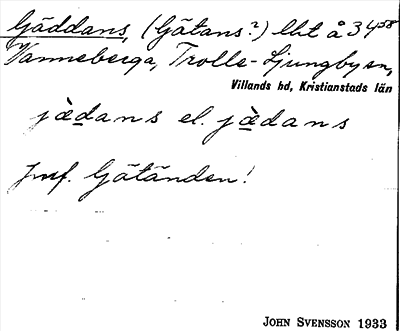 Gäddans, (Gätans?) lht å 3 4 58
Vanneberga, Trolle-Ljungby sn,
Villands hd, Kristianstads län
jǜdans el. jædans
Jmf. Gätänden!
JOHN SVENSSON 1933